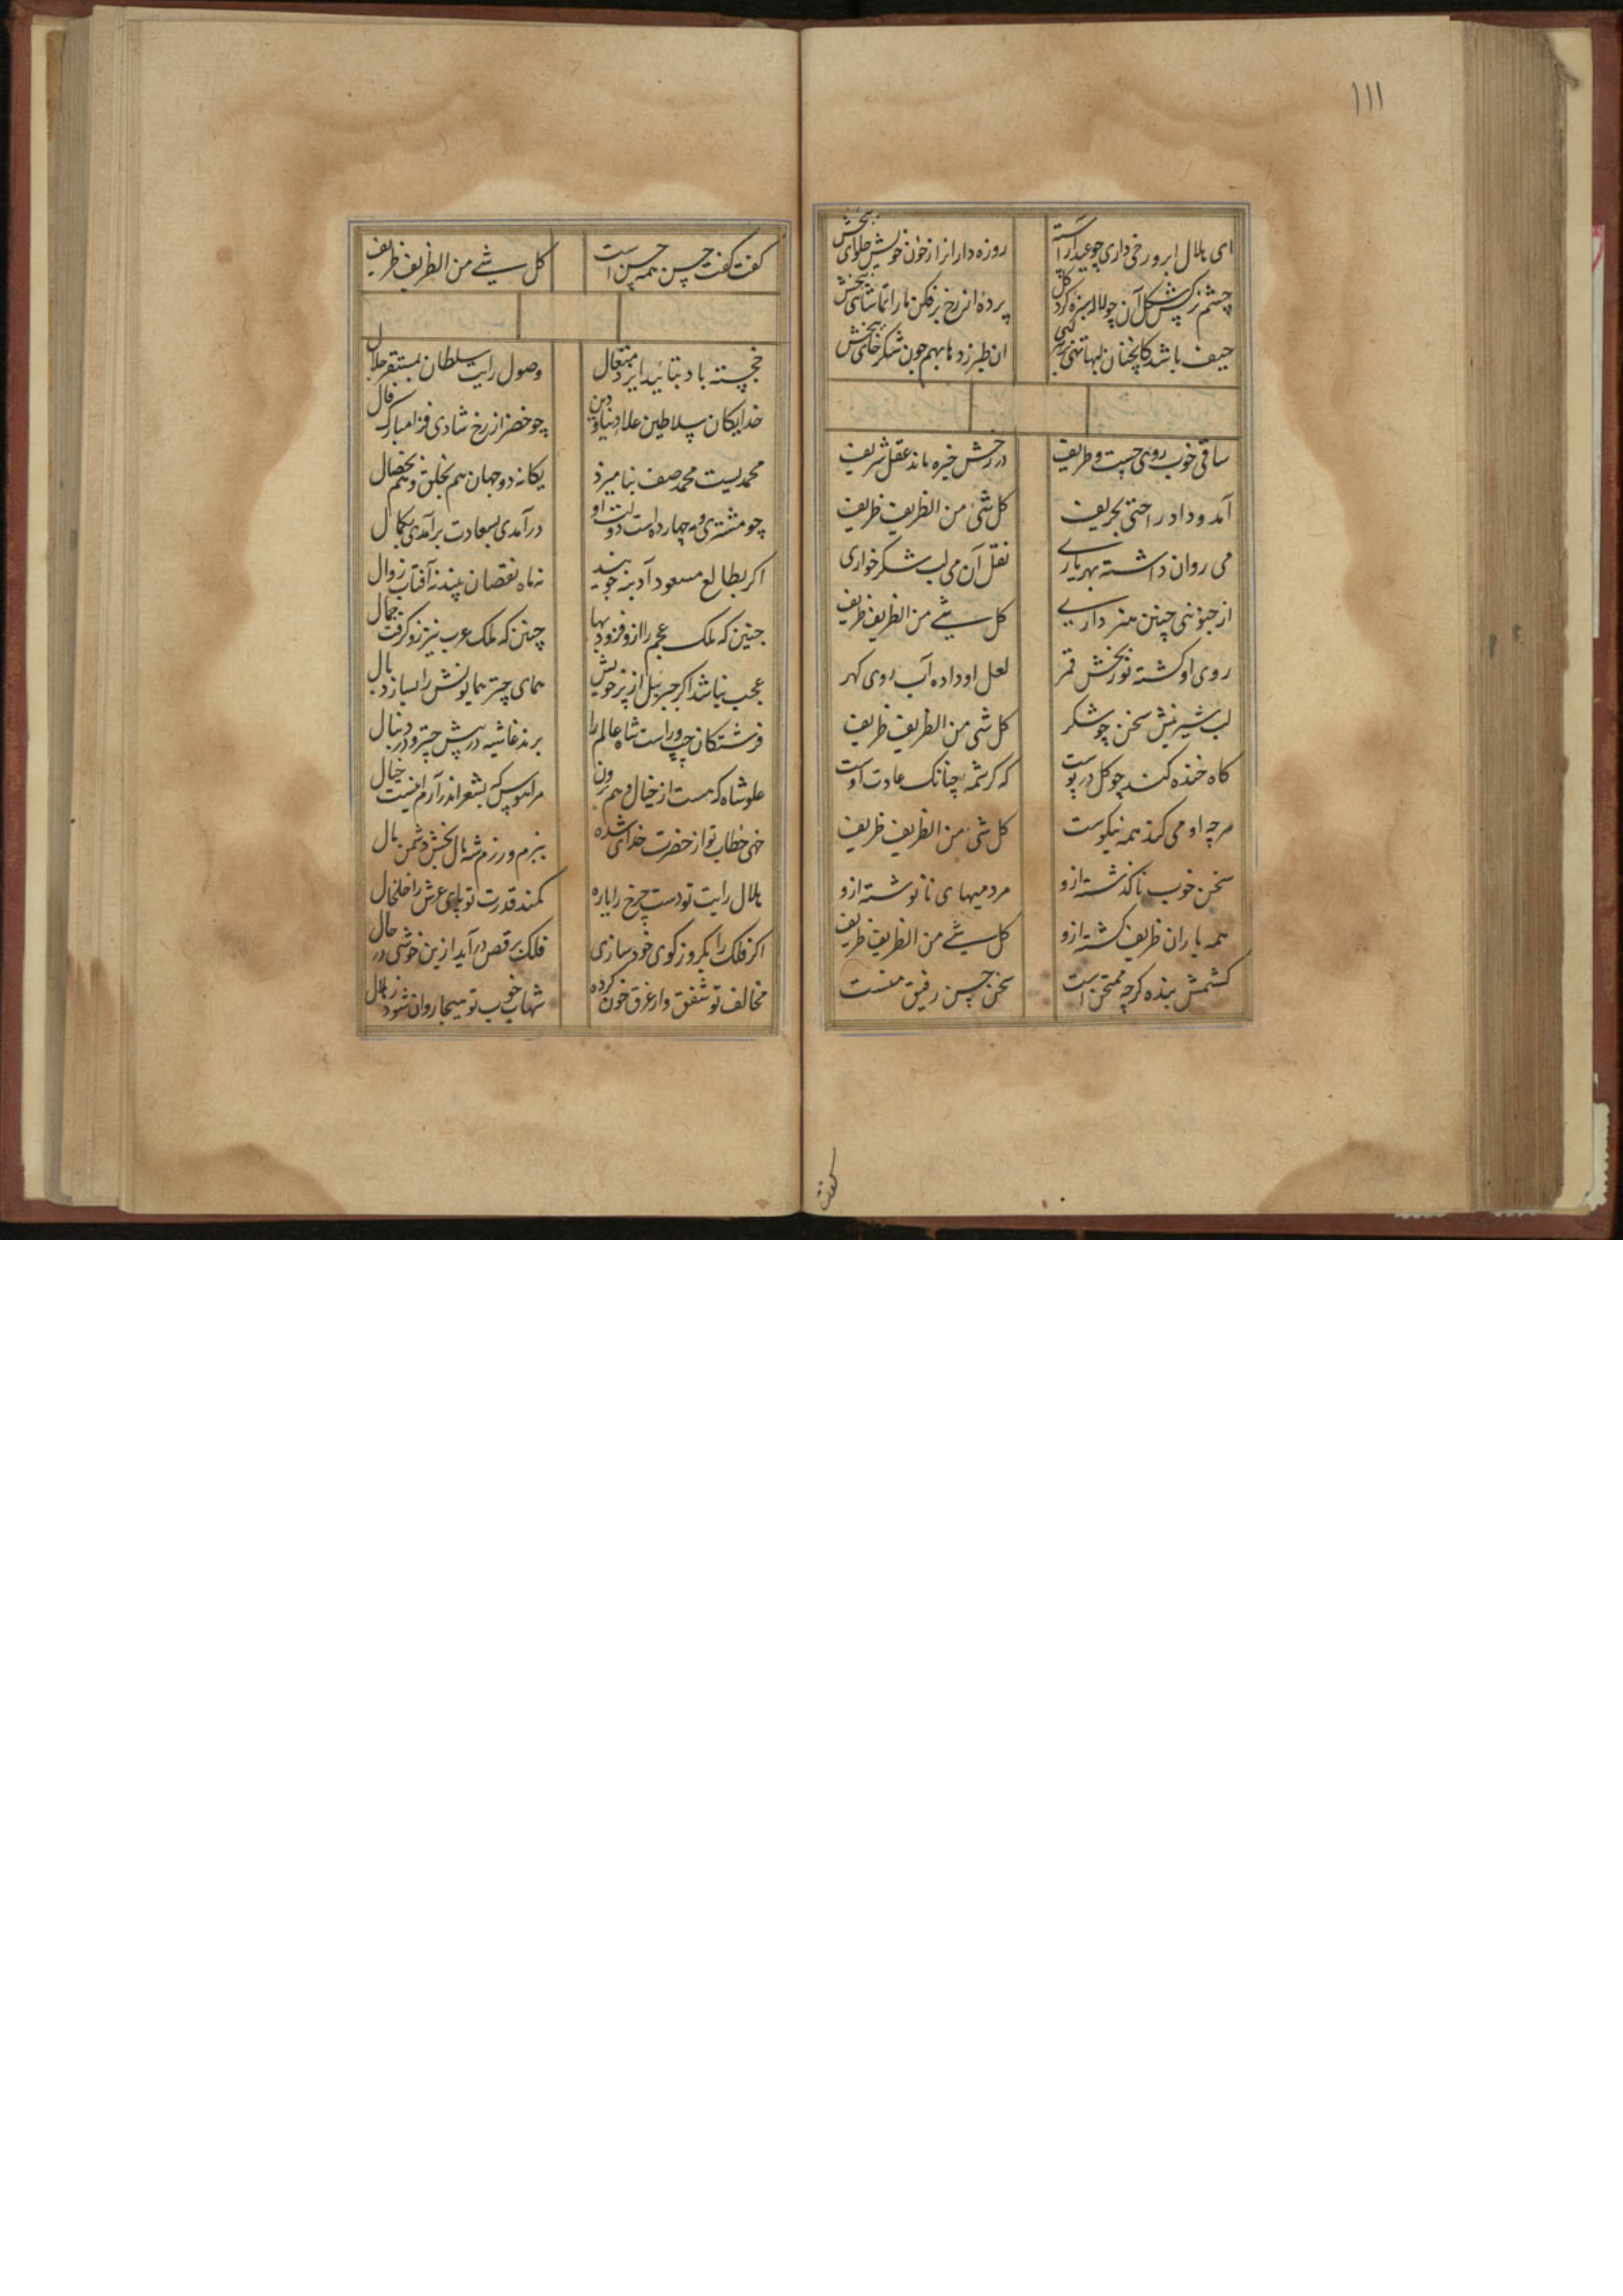 ۱۱۱
ای هلال ابرو رخی داری چو عید آراسته
روزه داران را از خوان خویش حلوای ببخش
پرده از رخ برفکن ما را تماشای ببخش
حیف باشد کانچنان لبها تهی
ان طبرزدها بهم چون شکرخای ببخش
ساقی خوب روی چست و ظریف
در رخش خیره ماند عقل شریف
آمد و داد راحتی بحریف
کل شیٔ من الظریف ظریف
می روان داشته بهر یاری
نقل آن می لب شکرخواری
از چو نئی چنین هنر داری
کل شیٔ من الظریف ظریف
روی او کشته نوربخش قمر
لعل او داده آب روی کهر
لب شیرینش سخن چو شکر
کل شیٔ من الظریف ظریف
کاه خنده کند چو کل در پوست
که کرشمه چنانک عادت اوست
هرچه او می کند همه نیکوست
کل شیٔ من الظریف ظریف
سخن خوب ناکذشته ازو
مردمیهای نانوشته ازو
همه یاران ظریف کشته ازو
کل شیٔ من الظریف ظریف
کشمش بنده کرچه ممتحن است
سخن حسن رفیق منست
کفت
کفت کفت حسن همه حسن است
کل شیٔ من الظریف ظریف
خجسته باد بتائید ایزد متعال
وصول رایت سلطان بمستقر جلال
خدایکان سلاطین علاء دنیا و دین
چو خضر از رخ شادی فزا مبارک فال
محمدیست محمد صف بنامیزد
یکانه دو جهان هم بخلق و هم بخصال
چو مشتری و مه چهارده است دولت او
درآمدی بسعادت برآمدی بکمال
اکر بطالع مسعود آد بنه جویند
نه ماه نقصان بیند نه آفتاب زوال
چنین که ملک عجم را ازو فزود بها
چنین که ملک عرب نیز زو کرفت جمال
عجب نباشد اکر جبرئیل از پر خویش
همای چتر همایونش را بسازد بال
فرشتکان چپ و راست شاه عالم را
برند غاشیه در پیش چتر و در دنبال
علو شاه که هست از خیال و هم برون
مرا هوس که بشعر اندر آرم انیست خیال
خهی خطاب تو از حضرت خدای شده
ببزم و رزم شه مال بخش دشمن مال
هلال رایت تو دست چرخ را یاره
کمند قدرت تو پای عرش را خلخال
اکر فلک را یکروز کوی خود سازی
فلک برقص درآید ازین خوشی در حال
مخالف تو شفق وار غرق خون کرده